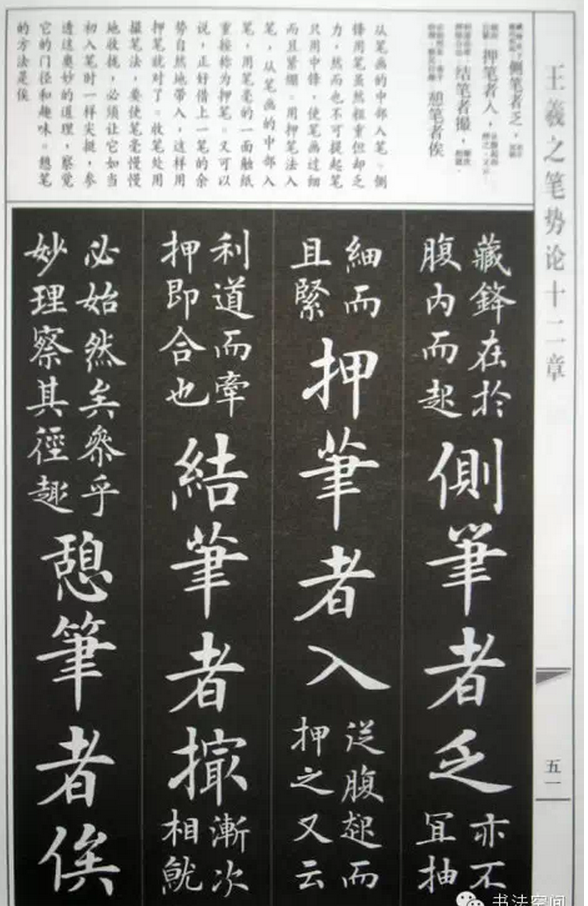 王羲之笔势论十二章
侧笔者乏，
押笔者入，
结笔者撮，
憩笔者俟
从笔画的中部入笔。侧
锋用笔虽然粗重但却乏
力，然而也不可提起笔
只用中锋，使笔画过细
而且紧绷。用押笔法入
笔，从笔画的中部入
笔，用笔毫的一面触纸
重按称为押笔。又可以
说，正好借上一笔的余
势自然地带入，这样用
押笔就对了。收笔处用
撮笔法，要使笔毫慢慢
地收拢，必须让它如当
初入笔时一样尖挺，参
透这奥妙的道理，察觉
它的门径和趣味。憩笔
的方法是俟
藏鋒在於
腹内而起
側筆者乏
亦不
冝抽
細而
且緊
押筆者入
從腹起而
押之又云
利道而牽
押即合也
結筆者撮
漸次
相就
必始然矣參乎
妙理察其徑趣
憩筆者俟
五一
书法空间